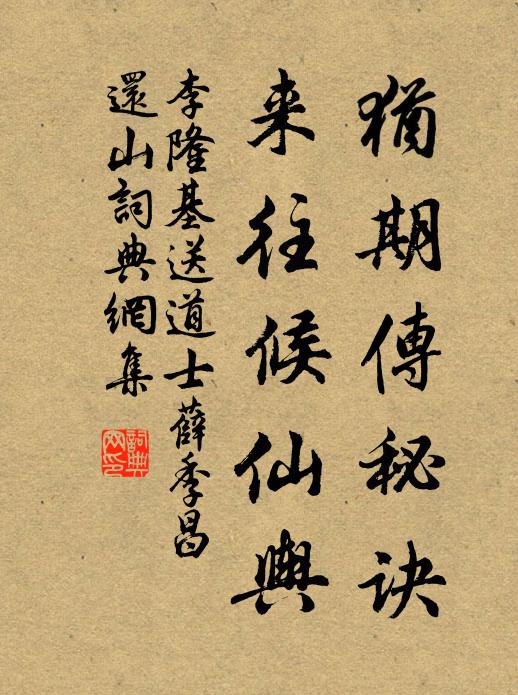 猶期傳秘訣
来往候仙輿
李隆基送道士薛季昌
還山詞典網集
詞典网印